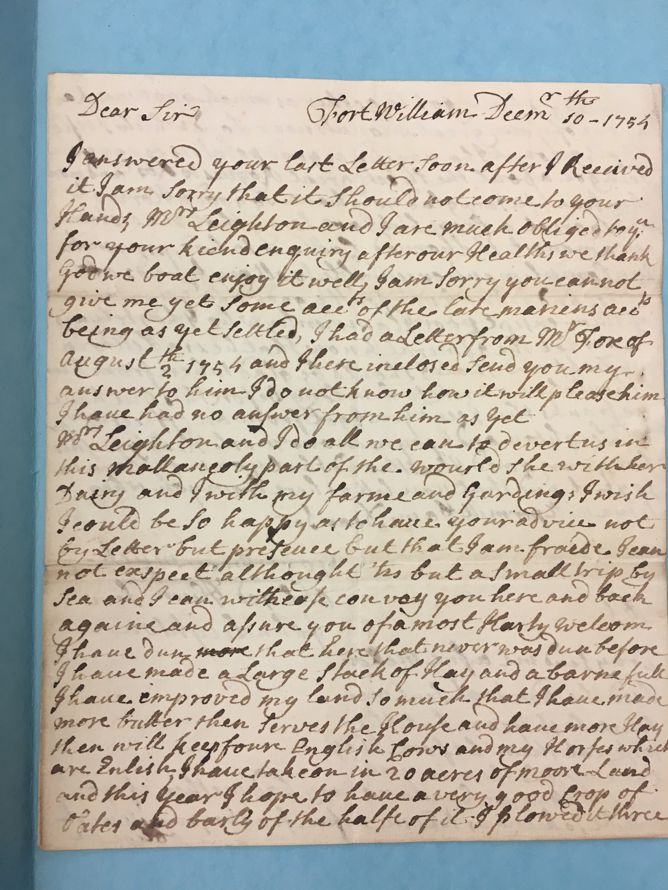 Dear Sir Fort William Decmr 10th - 1754
I answered your last Letter soon after I Received
it I am sorry that it should not come to your
Hands, Mrs Leighton and I are much obliged to yu
for your kiend enquiry after our Healths we thank
God we boat enjoy it well, I am sorry you cannot
give me yet some accts of the late mariens accts
being as yet settled, I had a Letter from Mr Fox of
August 2th 1754 and I here inclosed send you my
answer to him I do not know how it will please him
I have had no answer from him as yet
Mrs Leighton and I do all we can to devert us in
this mallancoly part of the wourld she with her
Dairy and I with my farme and Gardings I wish
I could be so happy as to have your advice not
by Letter but presence but that I am fraede I can
not exspect althought 'tis but a small trip by
sea and I can with ease convay you here and back
againe and assure you of a most Harty welcom
I have dun more that here that never was dun before
I have made a Large Stack of Hay and a barne full
I have emproved my land so much that I have made
more butter then serves the House and have more Hay
then will keep foure English Cows and my Horses which
are Enlish I have takeon in 20 acres of moore Land
and this year I hope to have a very good Crop of
Oates and barly of the halfe of it I plowed it three